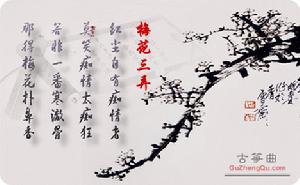 梅花三弄
红尘自有痴情者
莫笑痴情太痴狂
若非一番寒澈骨
那得梅花扑鼻香
古筝曲
GuZhengQu.com